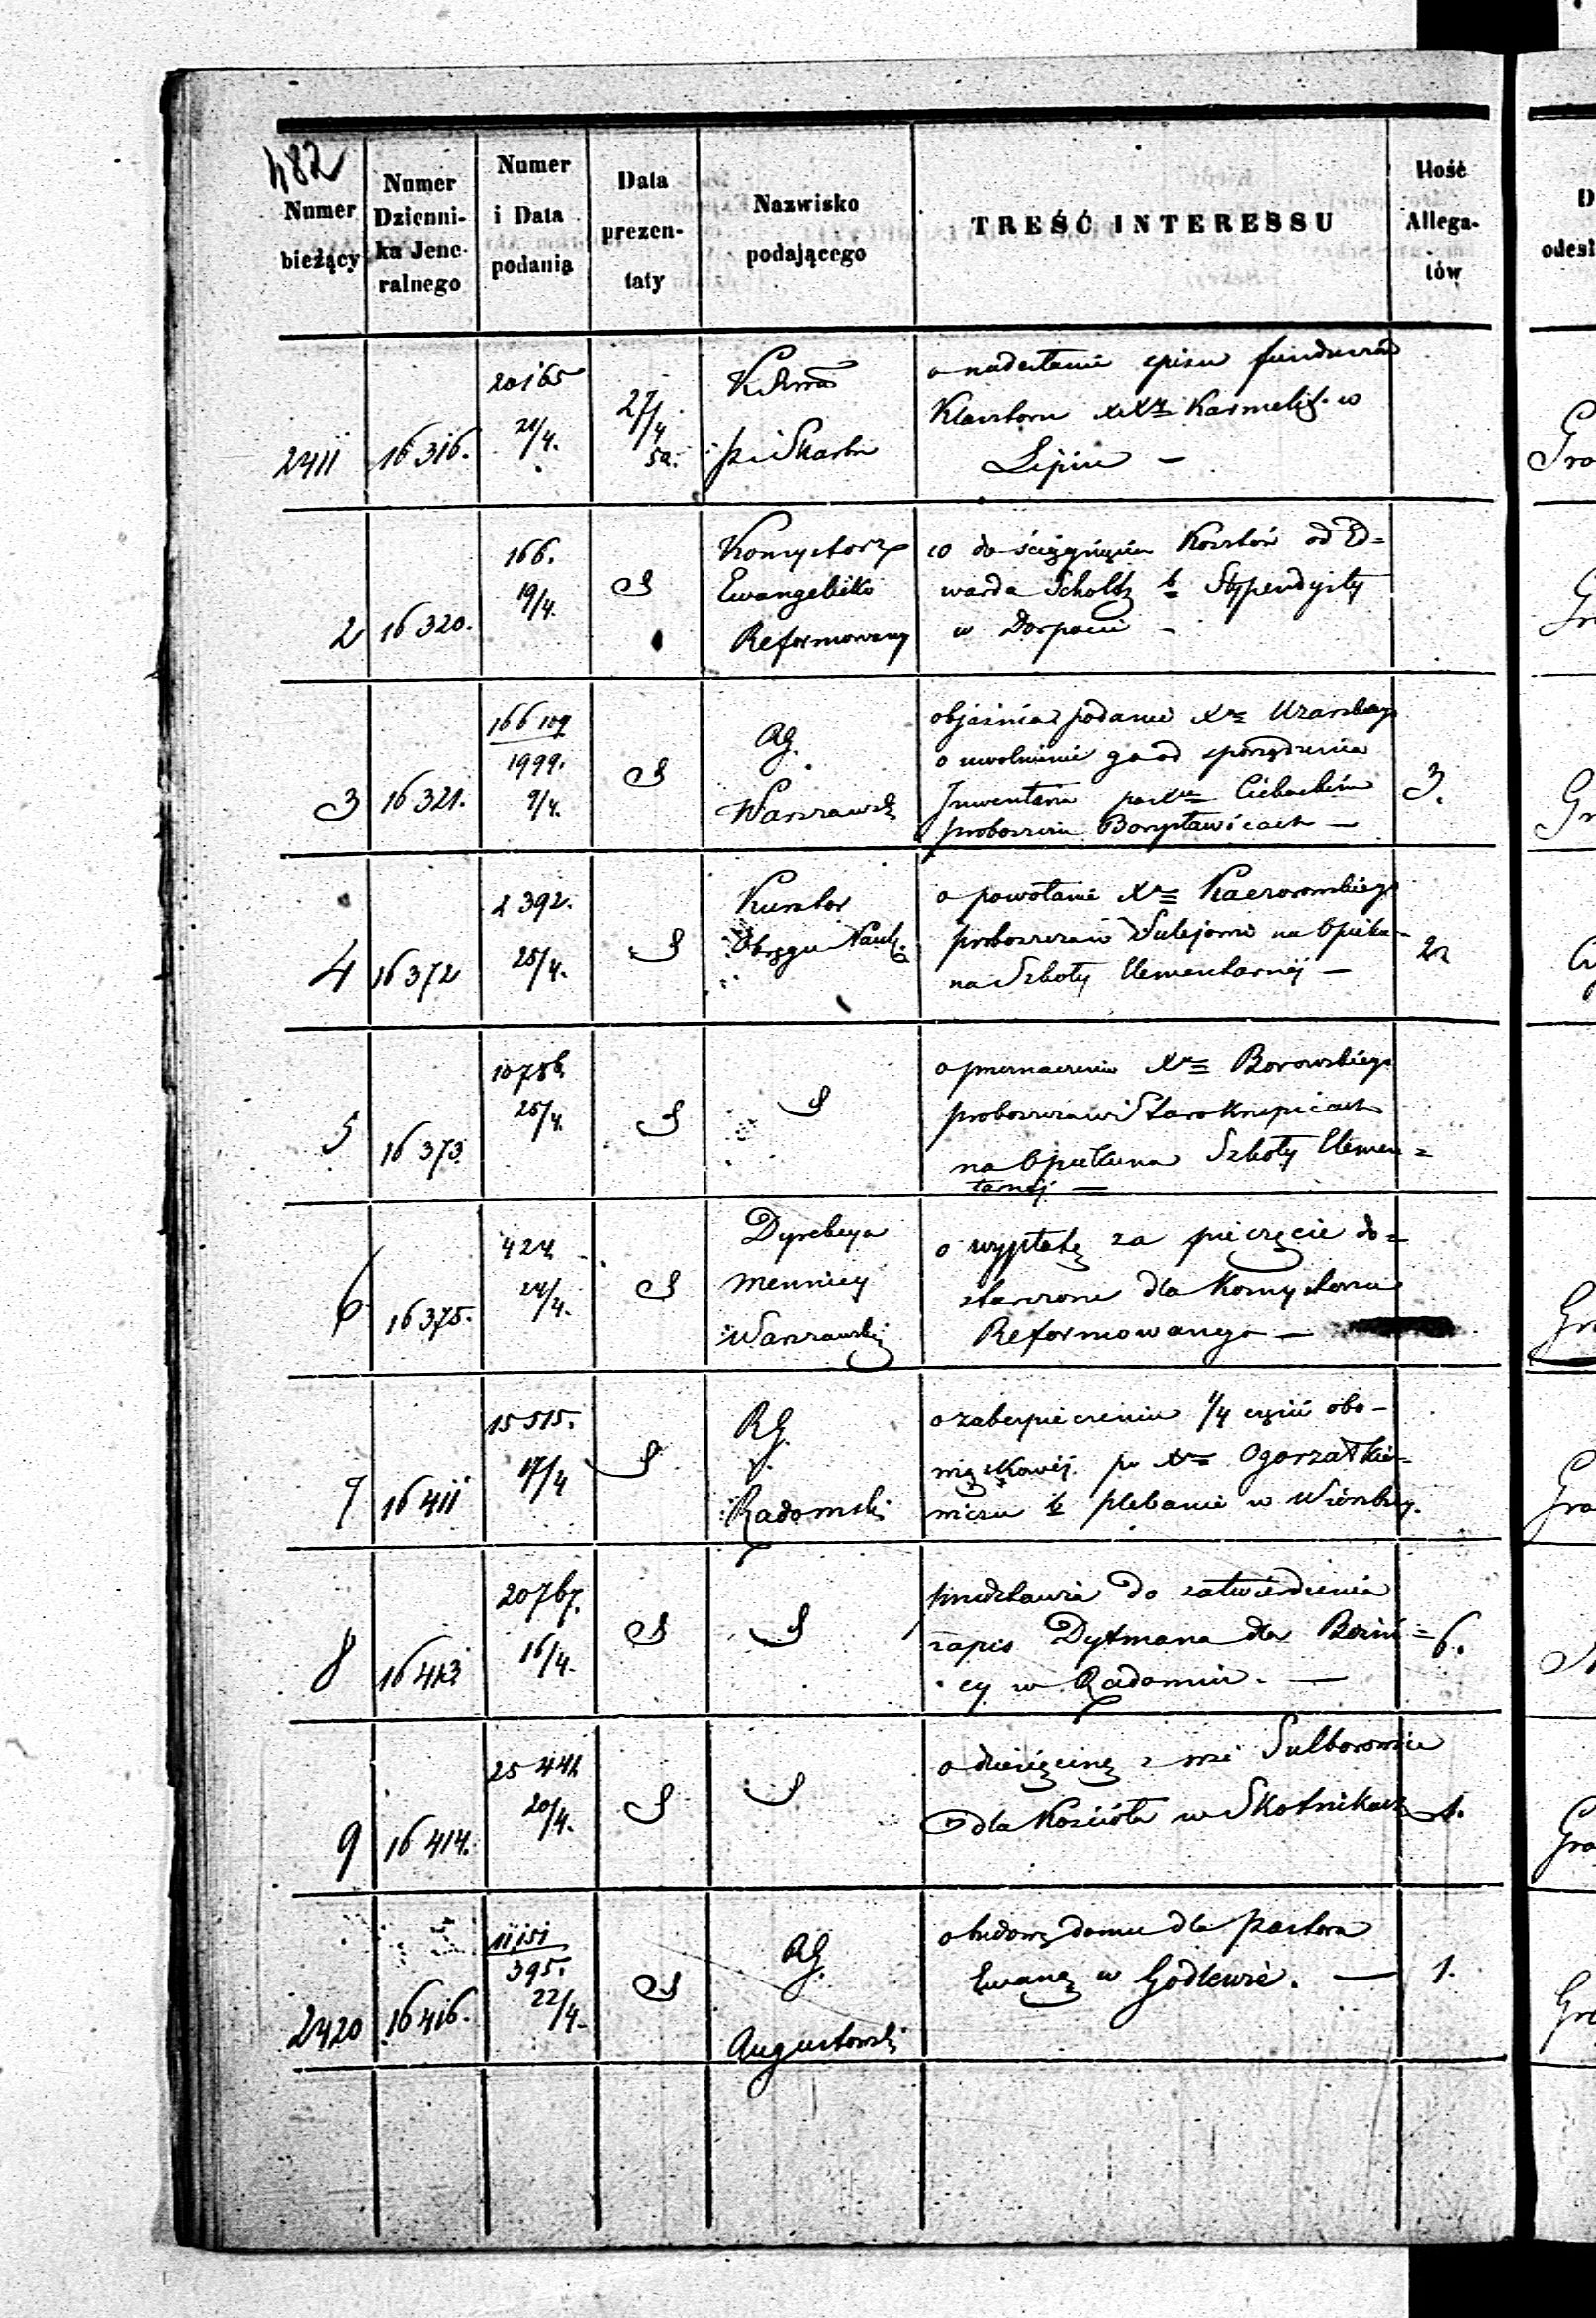 482
Numer
bieżący
Numer
Dzienni-
ka Jene-
ralnego
Numer
i Data
podania
Data
prezen-
taty
Nazwisko
podającego
TREŚĆ INTERESSU
Ilość
Allega-
tów
D
odesł
2411
16316.
20165
21/4.
27/4
52.
p. i Skarbu
o nadesłanie spisu funduszów
Klasztoru XX Karmelit. w
Lipiu —
Gro
2
16320.
166.
19/4.
S
Konsystorz
Ewangelicko
Reformowany
co do ściągnięcia Kosztów od Ed=
warda Scholtz b Stypendysty
w Dorpacie —
3
16321.
166109
1999.
9/4.
S
RG.
Warszawsk
objaśnia podanie Xa
o uwolnienie go od sporządzenia
Inwentarza po Xu
proboszczu Borysławicach —
3.
Gr
4
16372
2392.
25/4.
S
Kurator
Okręgu Nauk.
o powołanie Xa Kaczorowskiego
proboszcza w Sulejowie na Opieku-
na Szkoły Elementarnéj —
2
5
16373.
10786
25/4.
S
S
o przeznaczenie Xa Borowskiego
proboszcza w Starokrzepicach
na Opiekuna Szkoły Elemen=
tarnéj —
6
16375.
424
24/4.
S
Dyrekcya
Mennicy
Warszawskiéj
o wypłatę za pieczęcie do=
starczone dla Konsystorza
Reformowanego —
Gro
7
16411
15515.
17/4
S
RG.
Radomski
o zabezpieczenie 1/4 części obo-
wiązkowéj po Xu Ogorzałkie=
wiczu b plebanie w Wierzbicy.
Gro
8
16413
20767.
16/4.
S
S
przedstawia do zatwierdzenia
zapis Dytmana dla Bożni=
cy w Radomiu. —
6.
9
16414.
25442
20/4.
S
S
o dziesięcinę z wsi Sulborowice
dla Kościoła w Skotnikach
1.
Gro
2420
16416.
11151
395.
22/4.
S
RG.
Augustowski
o budowę domu dla pastora
Ewang w Godlewie. —
1.
Gro